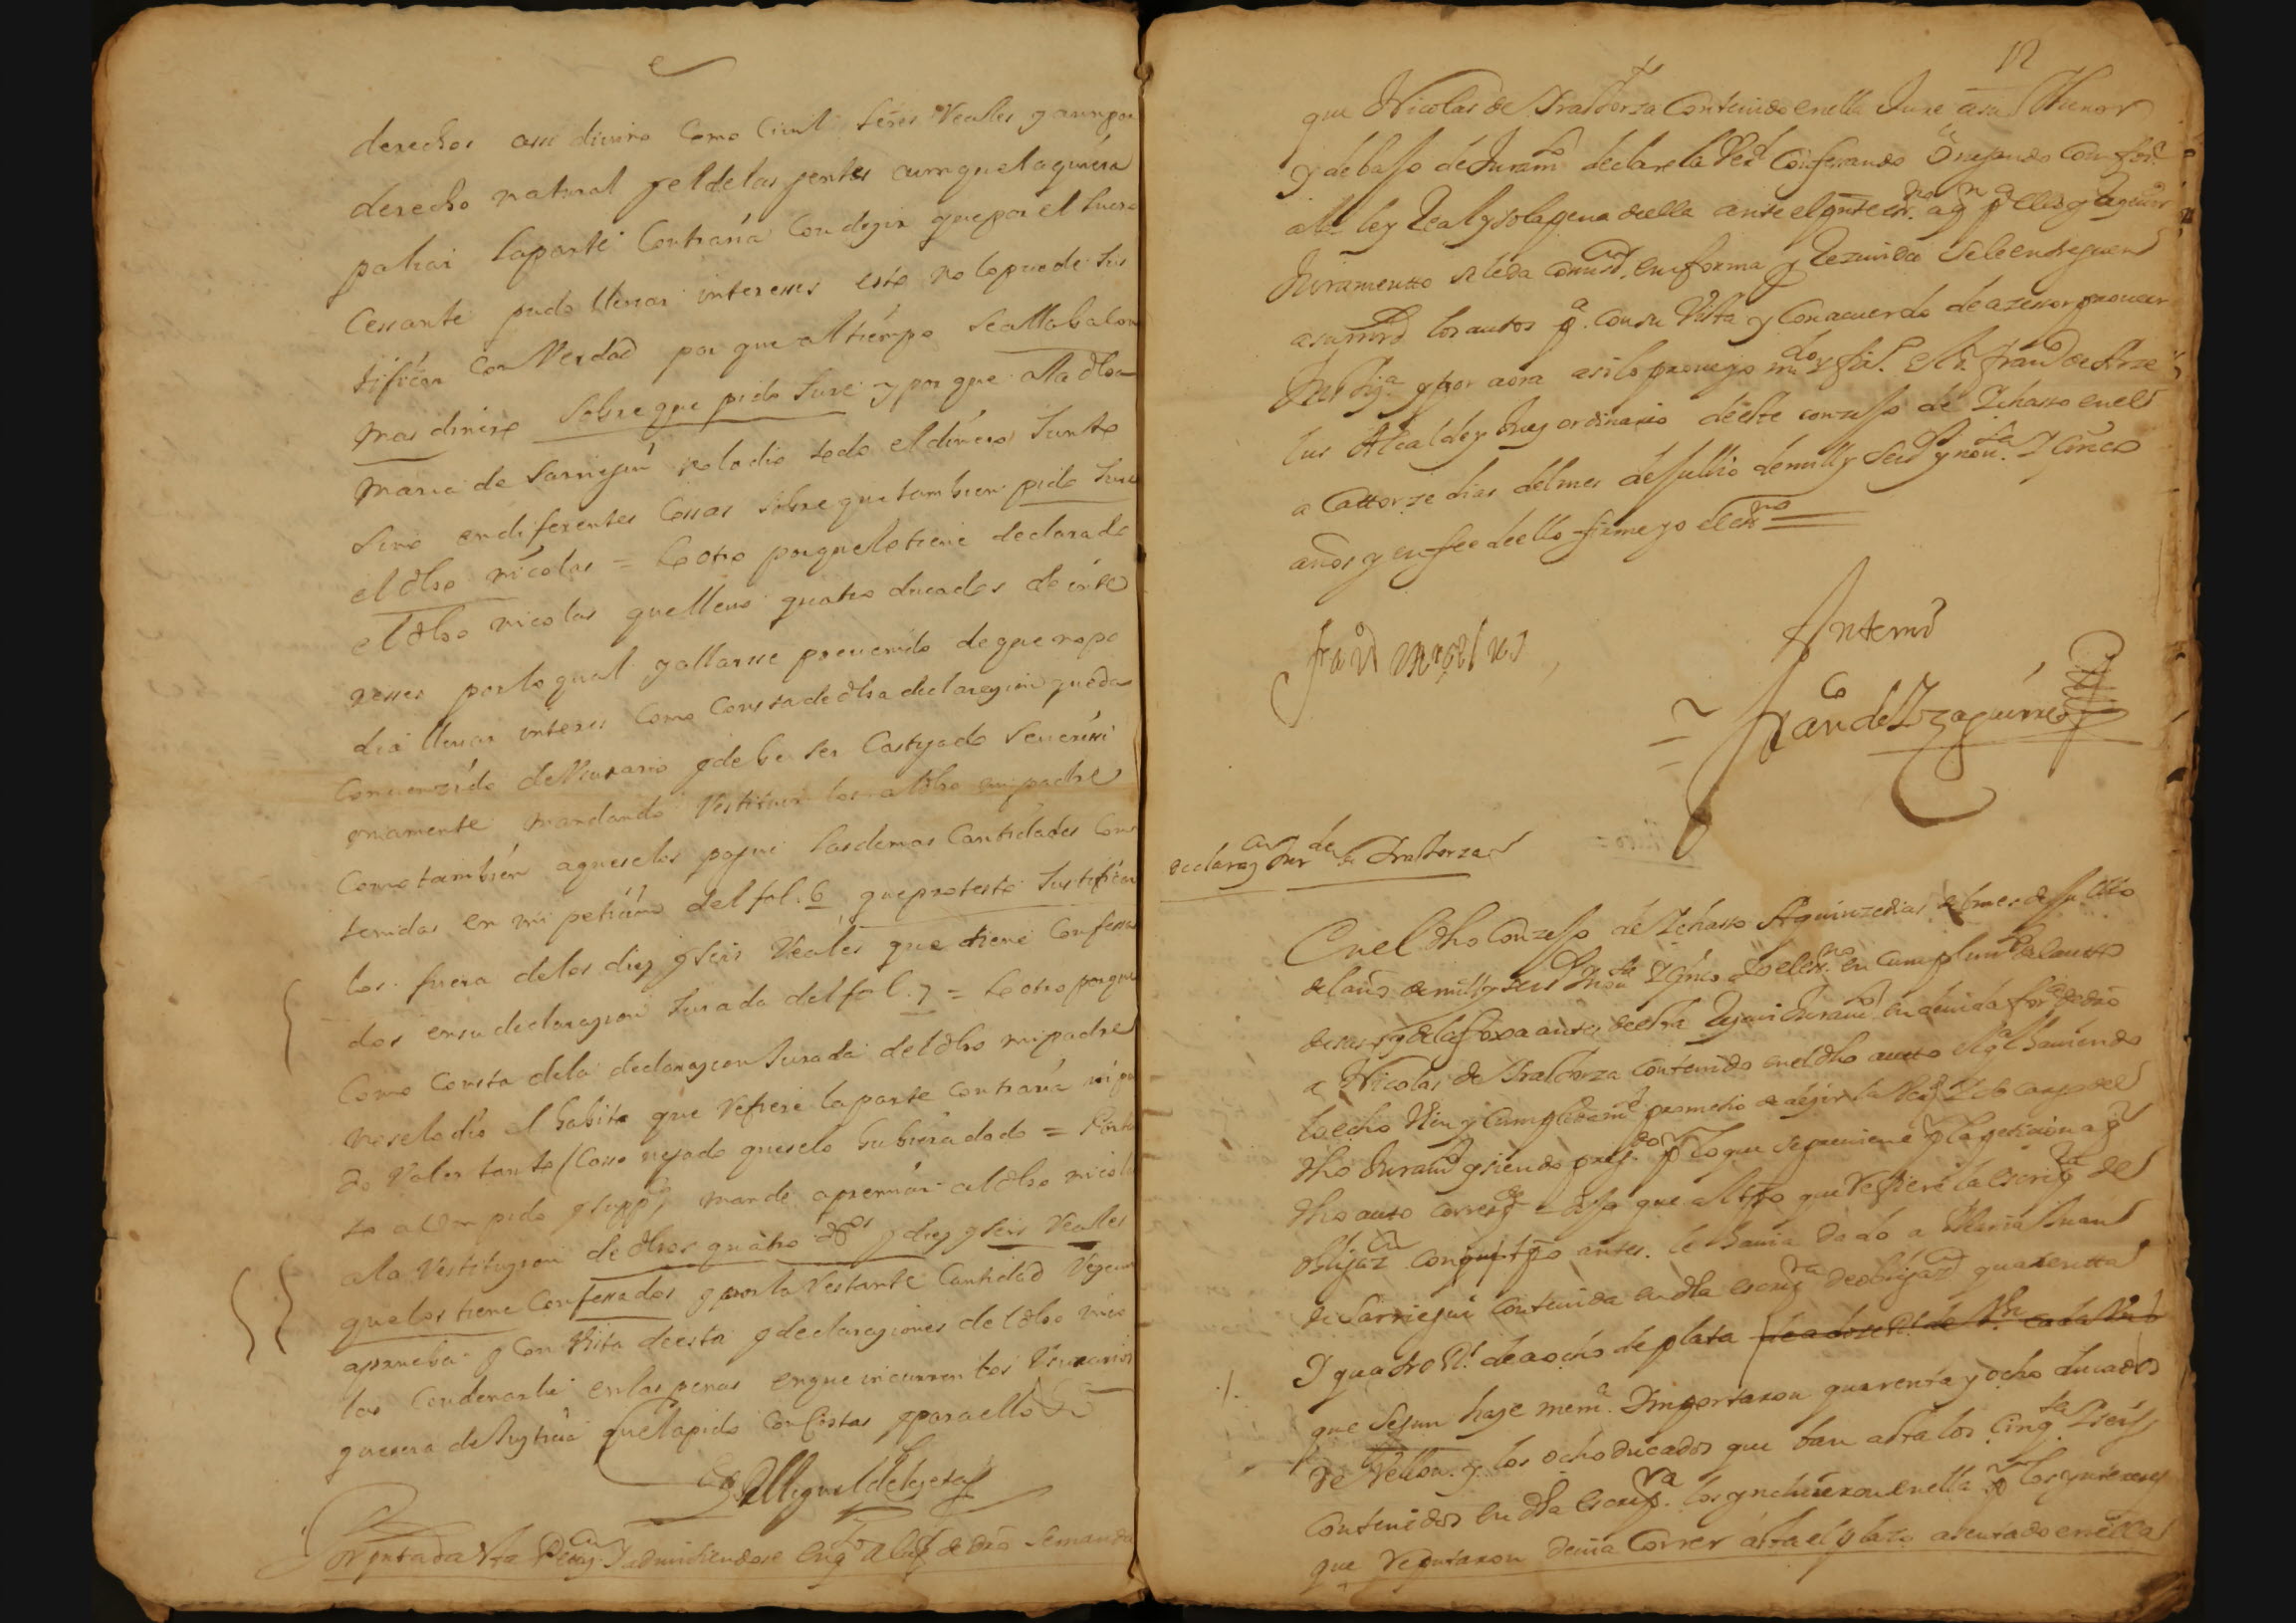 derechos assi divino como Civil leies Reales y aun por
derecho natural y el de las gentes aunque la quiera
paliar la parte Contraria Con degir que por el lucro
Cessante pudo lleuar interesses esto no lo puede Jus
tificar Con Verdad por que al tiempo se allaba con
mas dinero sobre que pido Jure y por que a la dha
Maria de Sarriegui no la dio todo el dinero Junto
Sino en diferentes Cossas sobre que tambien pido Jure
el dho nicolas = lo otro por que lo tiene declarado
el dho nicolas que lleuo quatro ducados de inte
resses por lo qual y allarsse preuenido de que no po
dia lleuar interes Como Consta de dha declaragion queda
Conuenzido de Vsurario y debe ser Castigado seuerissi
mamente mandando Restituir los al dho mi padre
Como tambien aquesclos pague las demas Cantidades Con
tenidas en mi peticion del fol. 6 que protesto Justificar
los. fuera de los diez y seis Reales que tiene Confessa
dos en su declaragion Jurada del fol. 7 = lo otro porque
Como Consta de la declaragion Jurada del dho mi padre
no se lo dio el habito que refiere la parte contraria ni pu
do Valer tanto / Casso negado que se lo hubiera dado = Por ta
to a Vm pido y suppco mande apremiar al dho nicolas
a la Restitugion de dhos quatro dos y diez y seis Reales
que los tiene Confessados y por la Restante Cantidad Regeui
a prueba y Con Vista de esta y declaragiones del dho nico
las Condenarle en las penas en que incurren los Vsurarios
que sera de Justicia que la pido con Costas y para ello &
Miguel de
Pressentada esta Petiçon Y admitiendose en qto a lugr de dro Su md mando
12
que Nicolas de Iraltorza Contenido en ella Jure a su thenor
y debajo de Juramto declare la Verd Confesando o negando Conforme
a la ley Real y so la pena de ella ante el prnte essno a qn pa ello y Reciuir
Juramentto se le da Comisn en forma y Rezeuida se le entreguen
a su mrd los autos pa. con su Vista y Con acuerdo de azessor proueer
Justiçia y por aora asi lo proueyo mdo y firmo. el Sr franco de Arze
lus Alcalde y Juez ordinario de este conzejo de Ichasso en el
a Cattorze dias del mes de Jullio de mill y seiso y nouta Y Cinco
años y en fee de ello firme yo el essno
franco Arzelus
Antemi
Franco de Yzaguirre
declaraçon Jurda de Iraltorza
En el dho Conzejo de Ichasso A quinze dias del mes de Jullio
del año de mill y seiso Y nouta Y Cinco Yo el essno en Cumplimto del autto
de suso y de la foxa antes de esta Reçeui Juramto en deuida forma de dro
a Nicolas de Iraltorza contenido en el dho autto el ql hauiendo
lo echo Vien y Cumplidamte prometio de deçir la Verd Y so cargo del
dho Juramto y siendo pregdo por lo que se preuiene por la petiçion a q
dho auto correspde = dijo que al tpo que refiere la escripa de
obligazon con que tpo antes. le hauia dado a Maria Juan
de Sarriegui contenida en dha escripra de obligazon quarentta
Y quatro Rs. de a ocho de plata de a doze Rs. de Vn. cada Vno
que segun haze memra. Importaron quarenta y ocho ducados
de Vellon y los ocho ducados que ban asta los Cinqta Y seis
Contenidos en dha escripra. los yncluieron en ella por los yntereses
que Reputaron deuia Correr asta el plazo asentado en ella